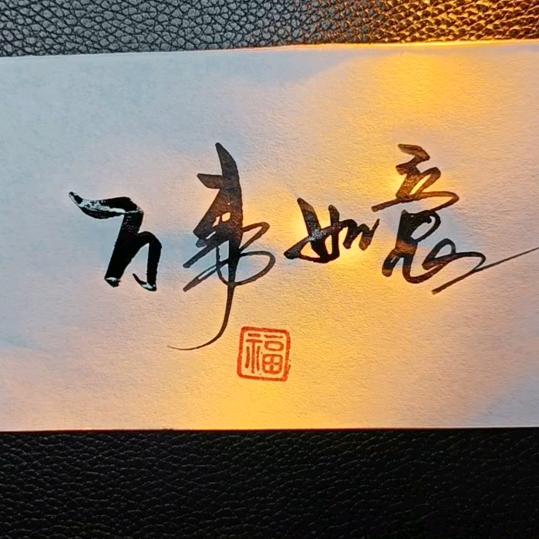 万事如意
福